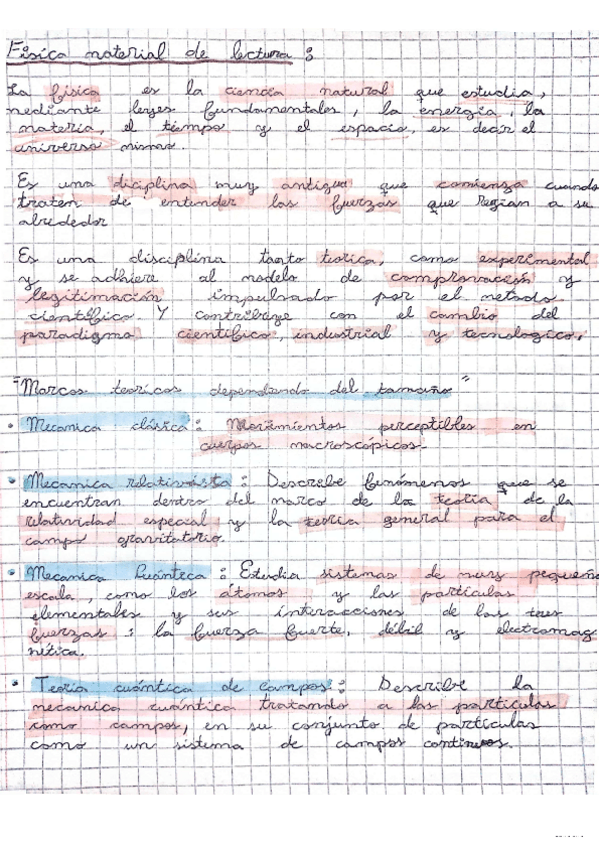 Física material de lectura :
La física es la ciencia natural que estudia,
mediante leyes fundamentales, la energía, la
materia, el tiempo y el espacio, es decir el
universo mismo.
Es una diciplina muy antigua que comienza cuando
traten de entender las fuerzas que regian a su
alrededor
Es una disciplina tanto teorica, como experimental
y se adhiere al modelo de comprovación y
legitimación impulsado por el metodo
científico. Y contribuye con el cambio del
paradigma científico, industrial y tecnologico.
"Marcos teoricos dependendo del tamaño"
• Mecanica clásica : Movimientos perceptibles en
cuerpos macroscópicos.
• Mecanica relativista : Describe fenómenos que se
encuentran dentro del marco de la teoria de la
relatividad especial y la teoria general para el
campo gravitatorio.
• Mecanica Cuántica : Estudia sistemas de muy pequeña
escala, como los átomos y las partículas
elementales y sus interacciones de las tres
fuerzas : la fuerza fuerte, débil y electromag
nética.
• Teoria cuántica de campos : Describe la
mecanica cuántica tratando a las partículas
como campos, en su conjunto de partículas
como un sistema de campos continuos.